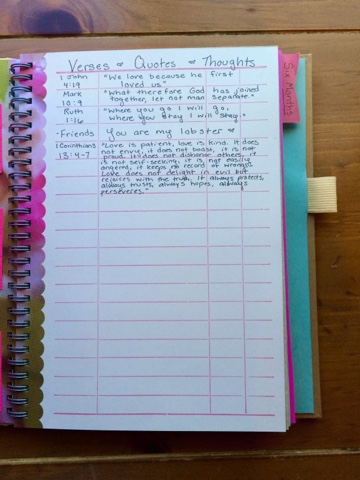 Verses & Quotes & Thoughts
1 John "We love because he first
4:19 loved us"
Mark "What therefore God has joined
10:9 together, let not man separate."
Ruth "Where you go I will go,
1:16 where you stay I will stay."
-Friends You are my lobster
1 Corinthians "Love is patient, love is kind. It does
13:4-7 not envy, it does not boast, it is not
proud. It does not dishonor others, it
is not self-seeking, it is not easily
angered, it keeps no record of wrongs.
Love does not delight in evil but
rejoices with the truth. It always protects,
always trusts, always hopes, always
perseveres."
Six Months